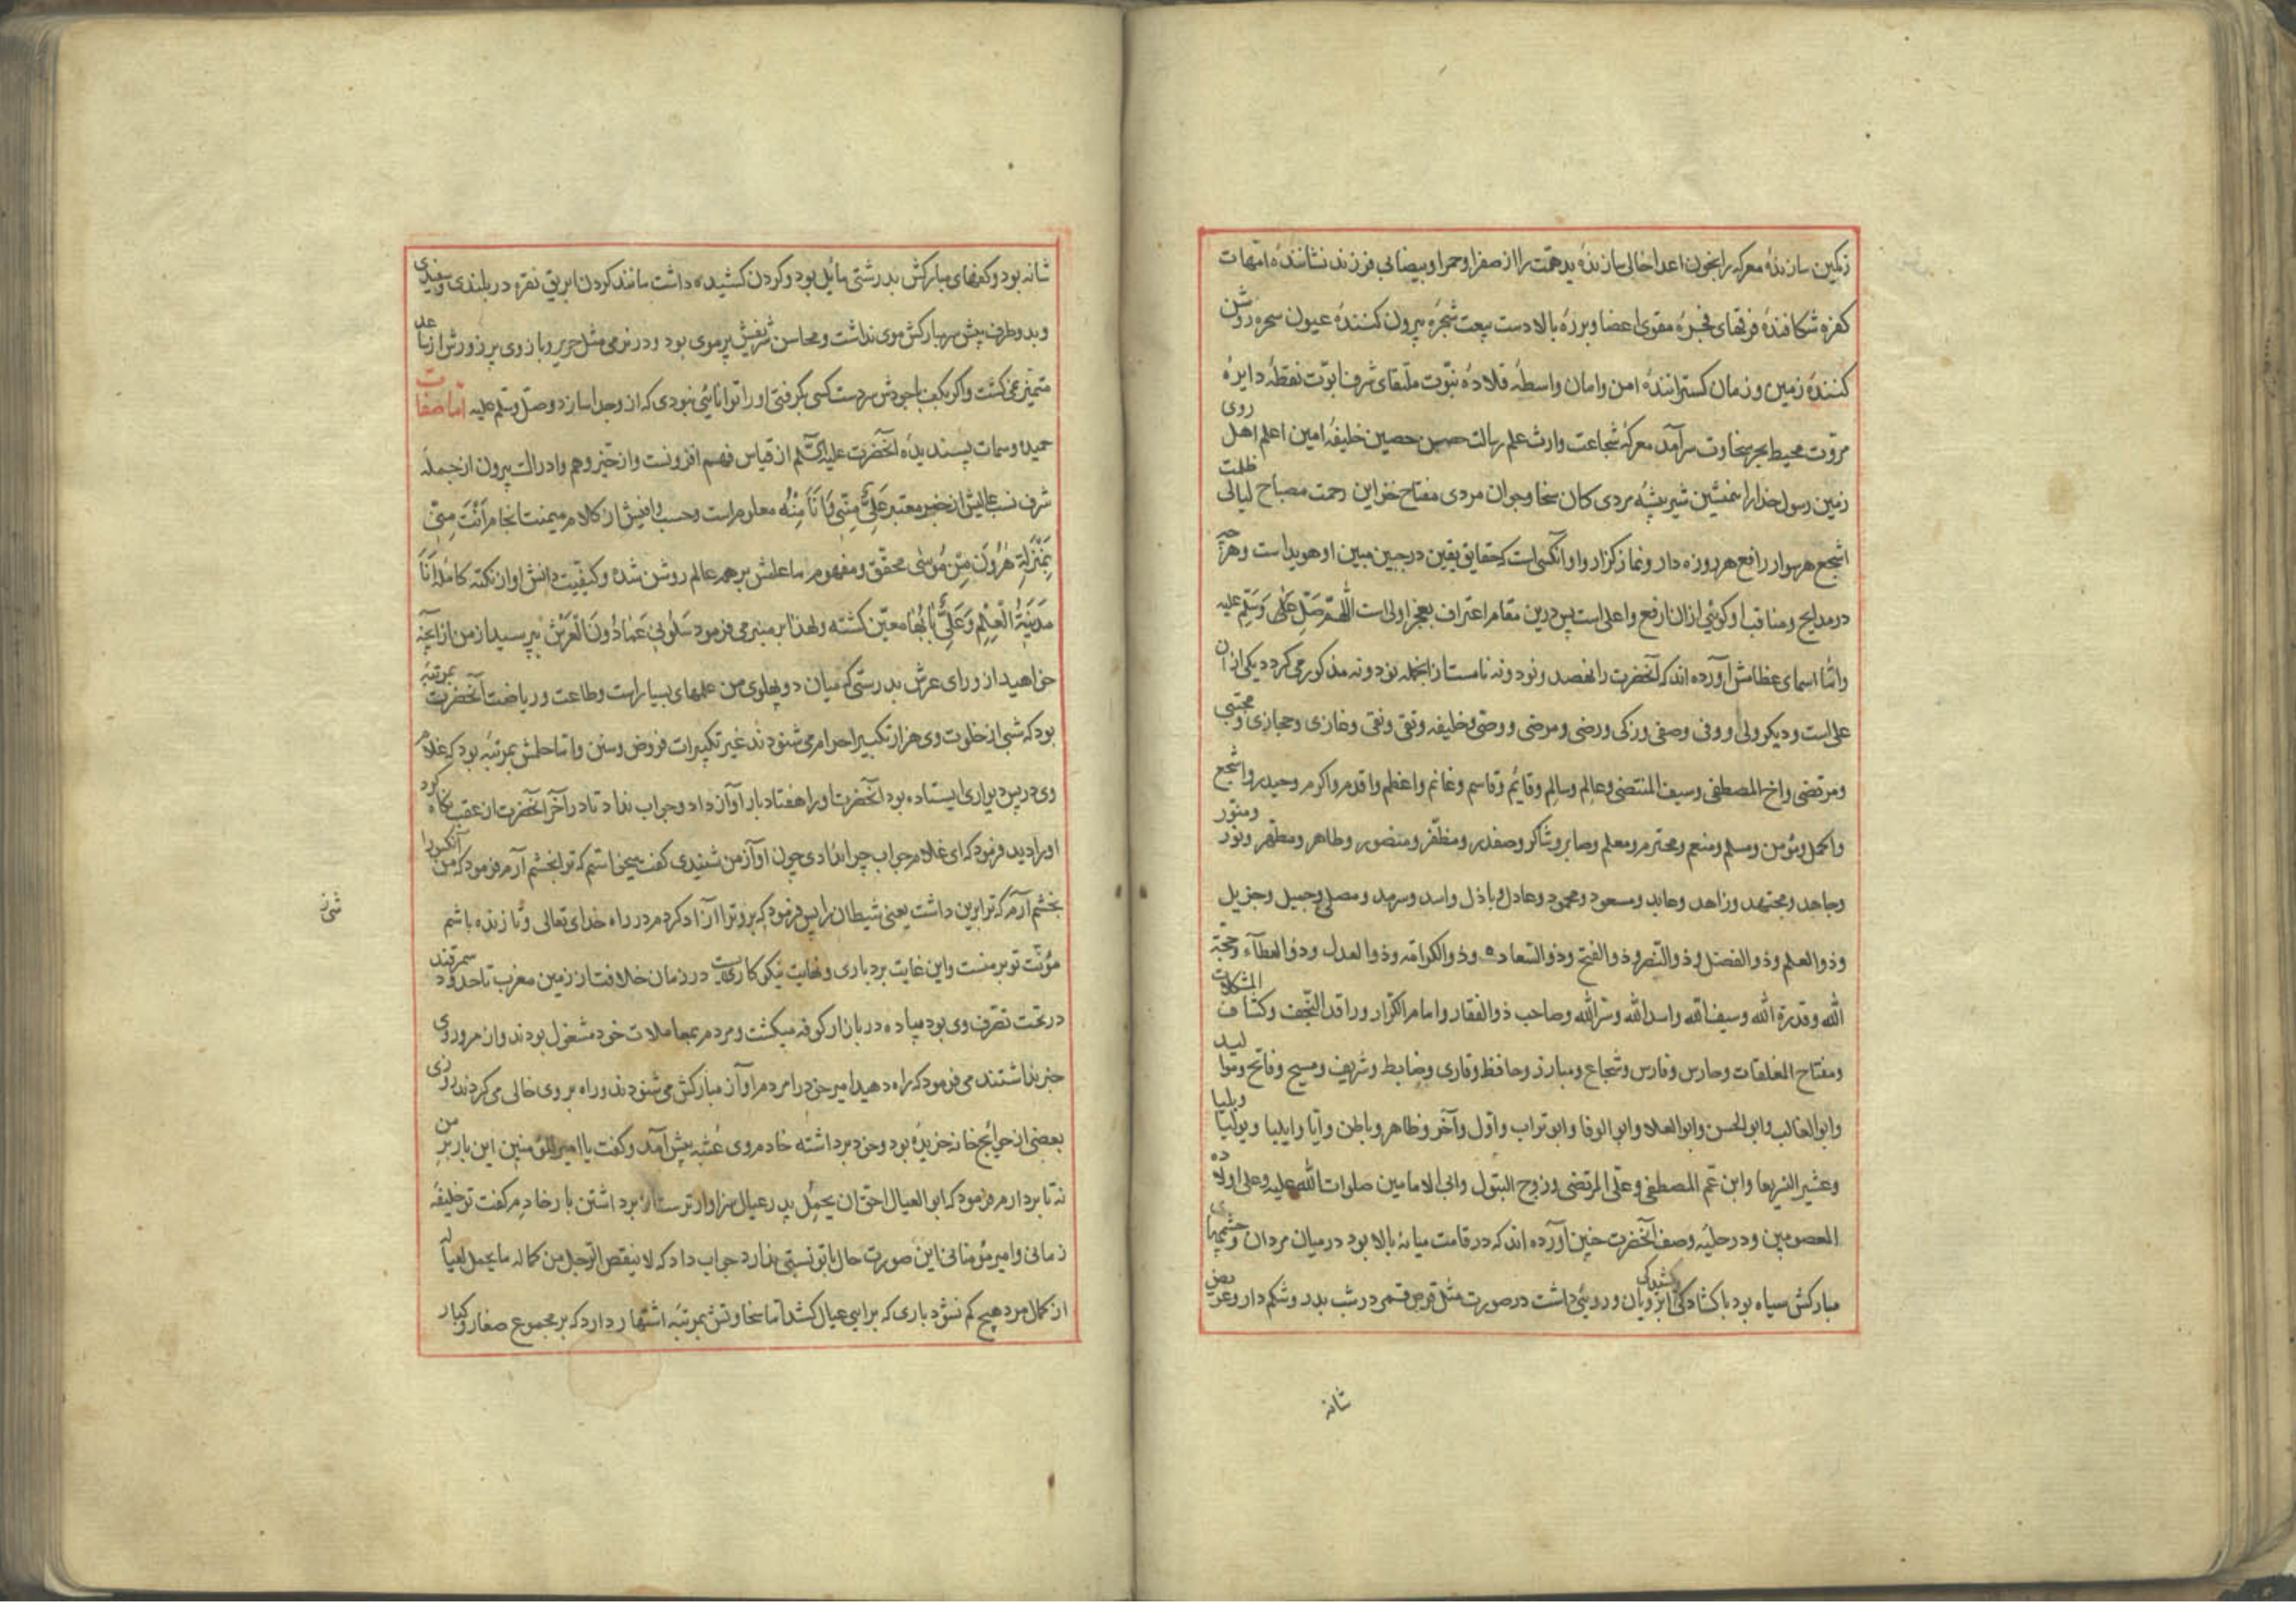 رنکین سازندهٔ معرکه را بخون اعدا خالی سازندهٔ ید همّت را از صفرا و حمرا و بیضا بی فرزند نشانندهٔ امّهات
کفره شکافندهٔ فرقهای فجره مقوی اعضا و برزه بالا دست بیعت شجره بیرون کنندهٔ عیون سحره روشن
کنندهٔ زمین و زمان کسترانندهٔ امن و امان واسطهٔ قلادهٔ نبوّت ملتقای شرف ابوّت نقطهٔ دایرهٔ
مروّت محیط بحر سخاوت سرآمد معرکهٔ شجاعت وارث علم رسالت حصن حصین خلیفهٔ امین اعلم اهل روی
زمین رسول خدا را همنشین شیر بیشهٔ مردی کان سخا و جوان مردی مفتاح خزاین رحمت مصباح لیالی ظلمت
اشجع هر سوار رافع هر روزه دار و نماز کزار و او آنکسی است که حقایق یقین در جبین مبین او هویداست و هرآنچه
در مدایح و مناقب او کوئی ازان ارفع و اعلی است پس درین مقام اعتراف بعجز اولی است اللّهمّ صلّ علی وسلّم علیه
وامّا اسمای عظامش آورده اند که آنحضرت را نهصد و نود و نه نامست از انجمله نود و نه مذکور می کردد یکی از ان
علی است و دیکر ولی و وفی و صفی و زکی و رضی و مرضی و وصی و خلیفه و تقی و نقی و غازی و حجازی و مجتبی
و مرتضی و اخ المصطفی و سیف المنتضی و عالم و سالم و قایم و قاسم و غانم و اعظم و اقدم و اکرم و حیدر و اشجع
و اکمل و مؤمن و مسلم و منعم و محترم و معلم و صابر و شاکر و صفدر و مظفّر و منصور و طاهر و مطهّر و نور و منوّر
و جاهد و مجتهد و زاهد و عابد و مسعود و محمود و عادل و باذل و اسد و سرمد و مصلی و جمیل و جزیل
و ذو العلم و ذو الفضل و ذو النصر و ذو الفتح و ذو السّعاده و ذو الکرامة و ذو العدل و ذو العطآء و حجّة
الله و قدرة الله و سیف الله و اسد الله و سرّ الله و صاحب ذو الفقار و امام الکرّار و راقد النّجف و کشاف المشکلات
و مفتاح المغلقات و حارس و فارس و شجاع و مبارز و حافظ و قاری و ضابط و شریف و مسیح و فاتح
و ابو الغالب و ابو الحسن و ابو العلا و ابو الوفا و ابو تراب و اوّل و آخر و ظاهر و باطن و آیا و ایلیا و بولیا و بلیا
و عشیر الشریعا و ابن عمّ المصطفی و علی المرتضی و زوج البتول و اب الامامین صلوات الله علیه و علی اولاده
المعصومین و در حلیه و صف آنحضرت چنین آورده اند که در قامت میانه بالا بود در میان مردان و چشمها
مبارکش سیاه بود با کشادکی و کشیدکی ابرویان و روئی داشت در صورت مثل قرص قمر در شب بدر و شکم دار و عریض
شانه
شانه بود و کفهای مبارکش بدرشتی مایل بود و کردن کشیده داشت مانند کردن ابریق نقره در بلندی و سفیدی
و بدو طرف پیش سر مبارکش موی نداشت و محاسن شریفش پر موی بود و در نرمی مثل حریر و بازوی پر زورش از ساعد
متمیز نمی کشت و اکر بکف با جودش سر دست کسی بکرفتی او را توانائی نبودی که از وجدا سازد و صلّ وسلّم علیه امّا صفات
حمیده و سمات پسندیدهٔ آنحضرت علیه السّلم از قیاس فهم افزونست و از حیّز وهم و ادراک بیرون از جمله
شرف نسب عالیش از خبر معتبر عَلِیٌّ مِنّی وَاَنَا مِنْهُ معلوم است و حسب وافیش از کلام میمنت انجام اَنْتَ مِنّی
بِمَنْزِلَةِ هٰرُونَ مِنْ مُوسٰی محقّق و مفهوم اما علمش بر همه عالم روشن شده و کیفیّت دانش او از نکته کامله اَنَا
مَدینَةُ الْعِلْمِ وَعَلِیٌّ بٰابُهٰا معیّن کشته و لهذا بر منبر می فرمود سَلُونی عَمّٰا دُونَ الْعَرْشِ بپرسید از من از آنچه
خواهید از ورای عرش بدرستی که میان دو پهلوی من علمهای بسیار است و طاعت و ریاضت آنحضرت بمرتبهٔ
بود که شبی از خلوت وی هزار تکبیر احرام می شنودند غیر تکبیرات فروض و سنن و امّا حلمش بمرتبه بود که غلام
وی در پس دیواری ایستاده بود آنحضرت او را هفتاد بار آواز داد و جواب نداد تا در آخر آنحضرت از عقب نکاه کرد
او را دید فرمود که ای غلام جواب چرا ندادی چون آواز من شنیدی کفت میخواستم که ترا بخشم آرم فرمود که من آنکس را
بخشم آرم که ترا برین داشت یعنی شیطان را پس فرمود که برو ترا آزاد کردم در راه خدای تعالی و تا زنده باشم
مؤنت تو بر منست و این غایت بردباری و نهایت نیکو کاریست در زمان خلافت از زمین مغرب تا حدود سمرقند
در تحت تصرّف وی بود پیاده در بازار کوفه میکشت و مردم بمعاملات خود مشغول بودند و از مرور وی
خبر نداشتند می فرمود که راه دهید امیر خود را مردم آواز مبارکش می شنودند و راه بر وی خالی می کردند روزی
بعضی از حوایج خانه خریده بود و خود برداشته خادم وی عنبه پیش آمد و کفت یا امیر المؤمنین این بار بر من
نه تا بردارم فرمود که ابو العیال احقّ ان یحمل پدر عیال سزاوار ترست از برداشتن بار خادم کفت تو خلیفهٔ
زمانی و امیر مؤمنانی این صورت حال با تو نسبتی ندارد جواب داد که لا ینقص الرّجل من کماله ما یحمل لعیاله
از کمال مرد هیچ کم نشود باری که برای عیال کشد امّا سخاوتش بمرتبه اشتهار دارد که بر مجموع صغار و کبار